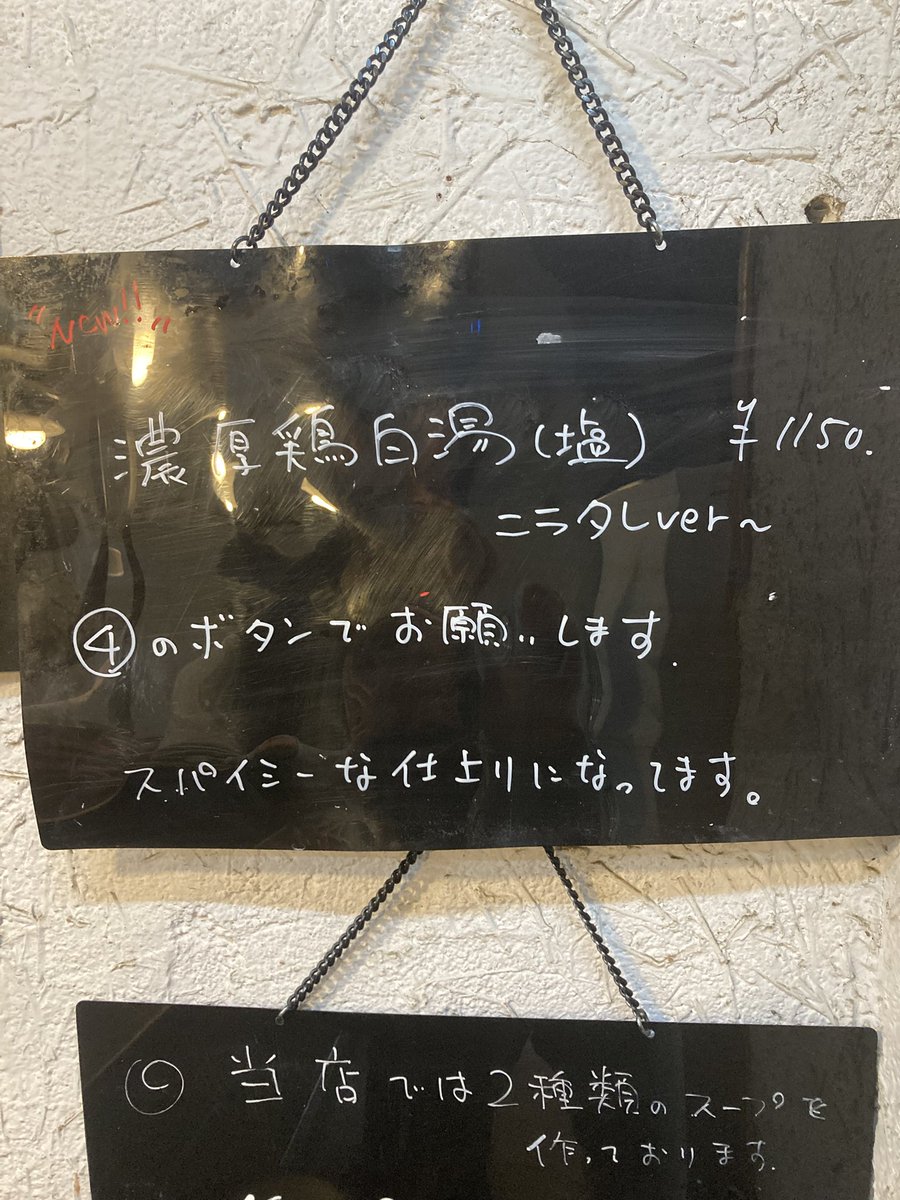 "New!!"
濃厚鶏白湯(塩) ¥1150.
ニラタレver~
④のボタンでお願いします.
スパイシーな仕上りになってます。
当店では2種類のスープを
作っております.